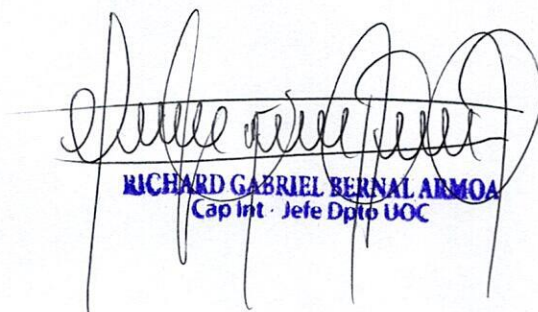 RICHARD GABRIEL BERNAL ARMOA
Cap Int - Jefe Dpto UOC